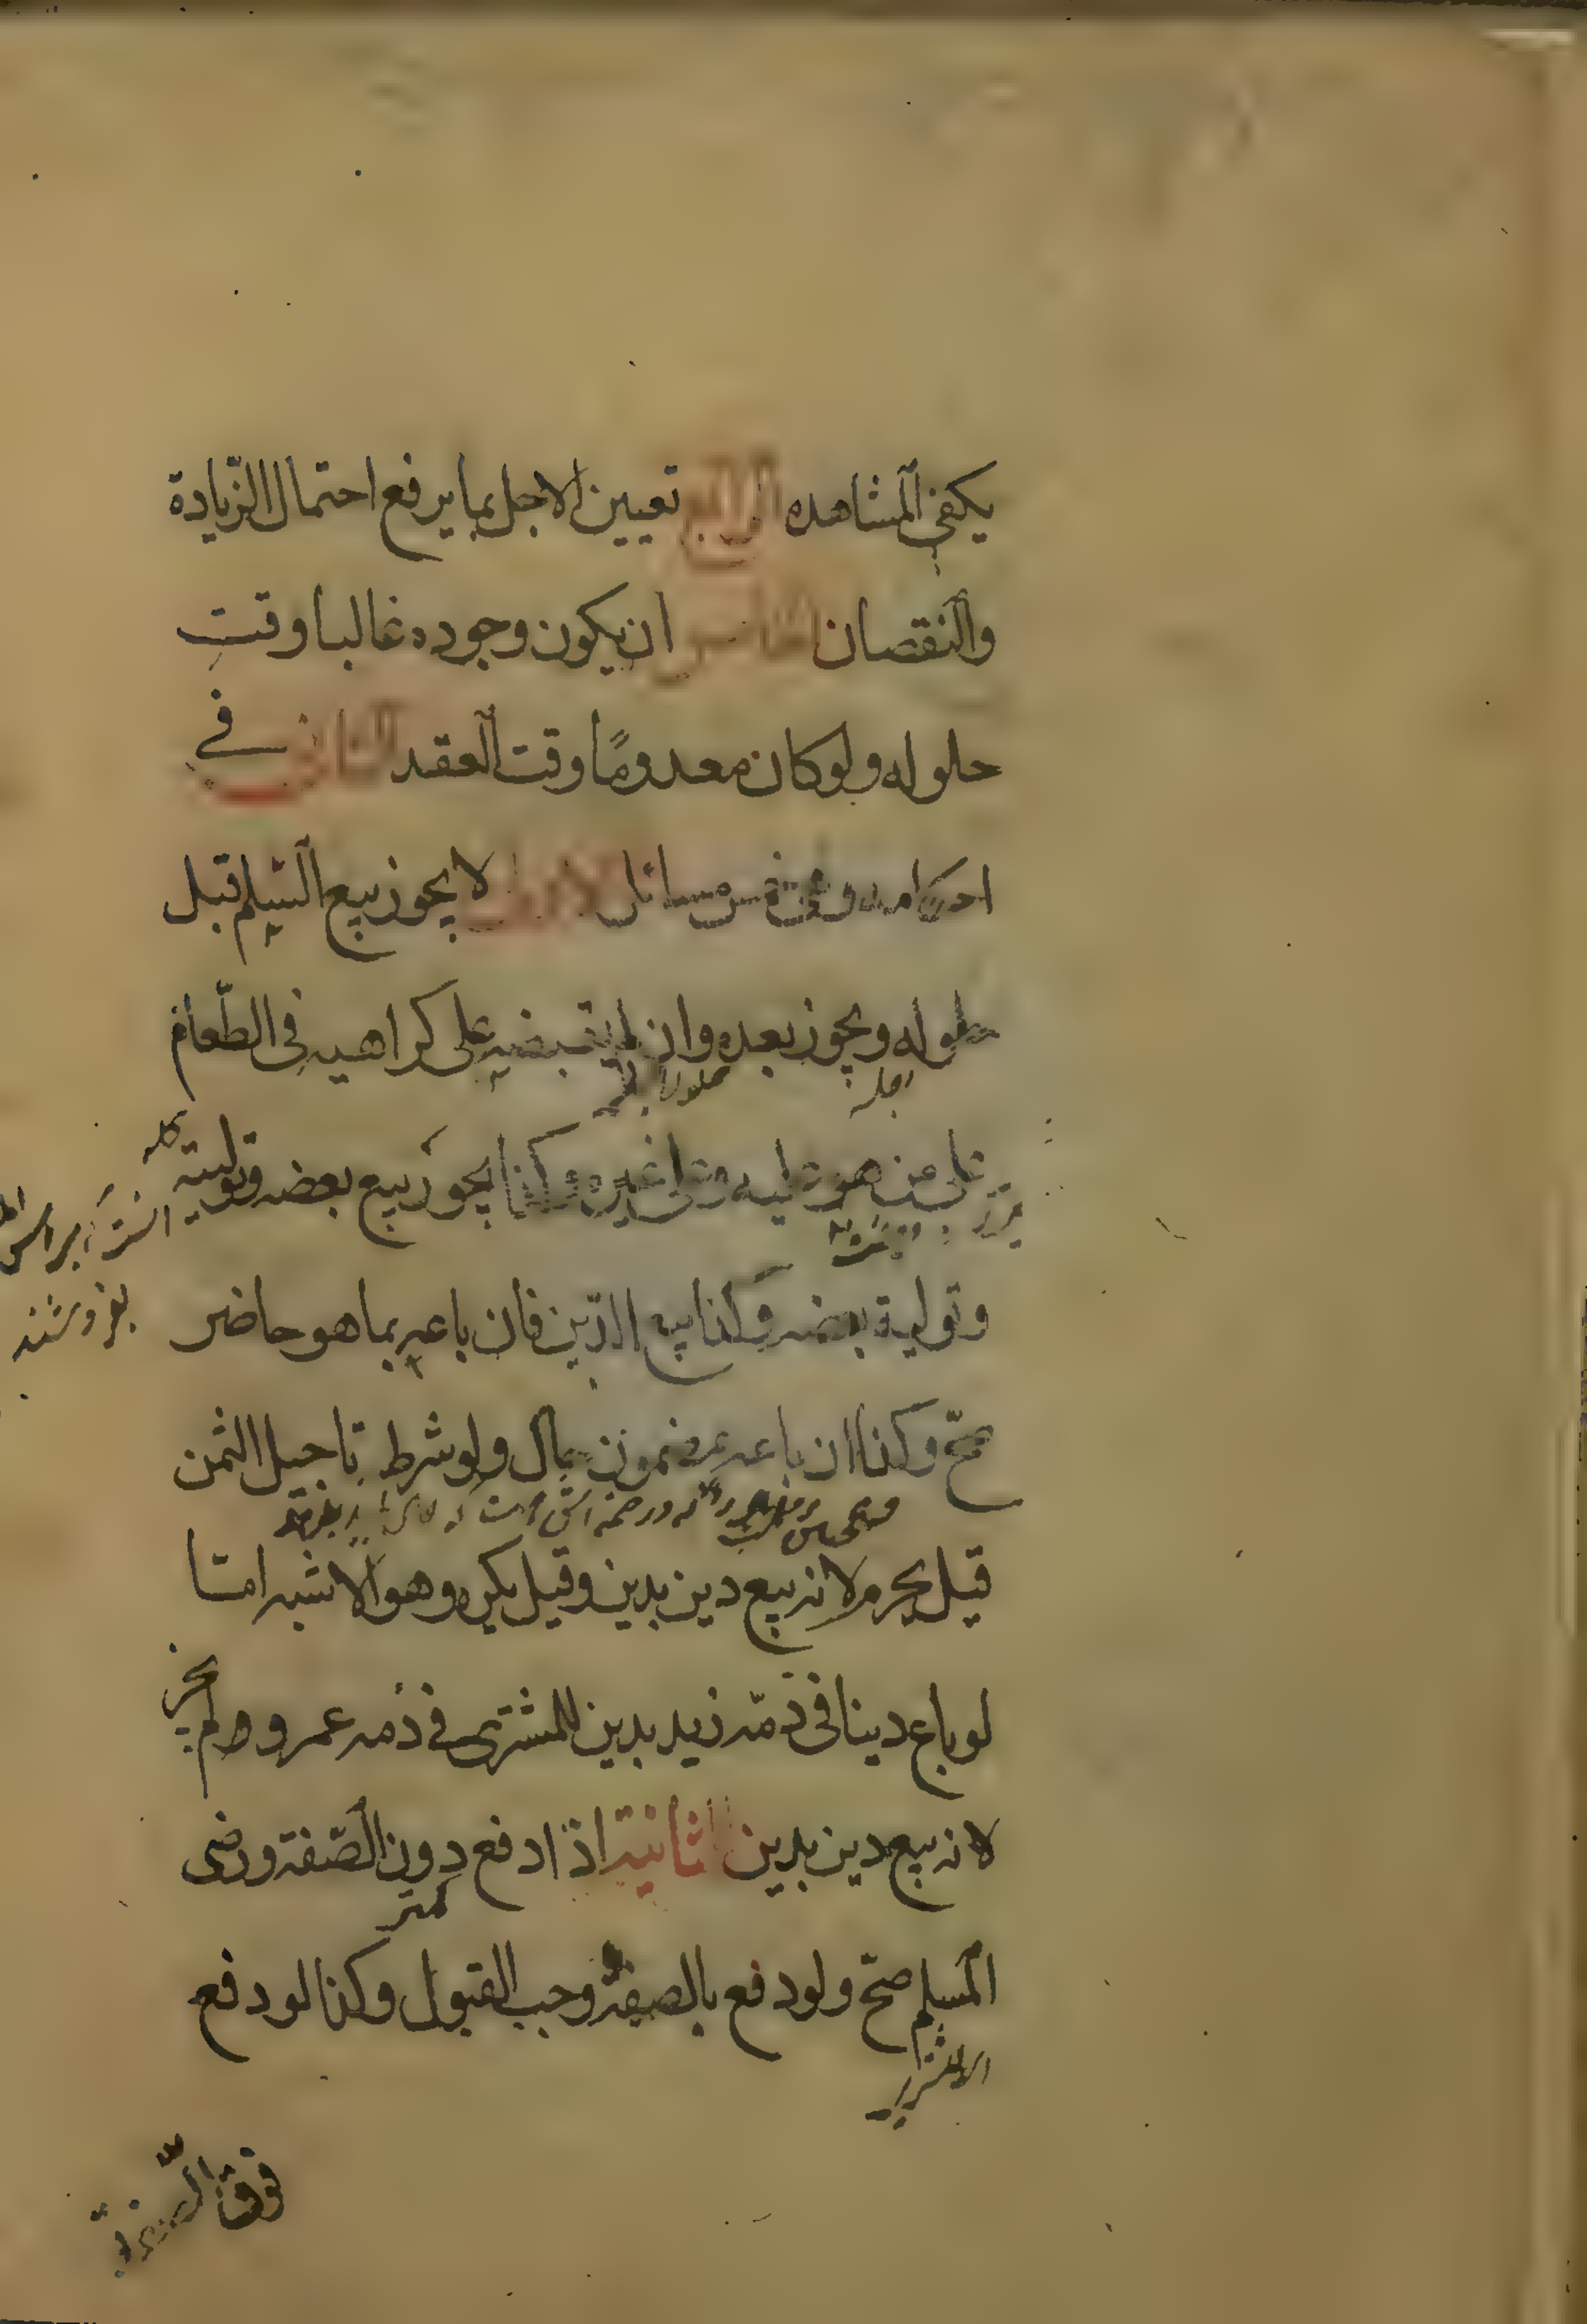 يكفي المشاهده الرابع تعيين الاجل بما يرفع احتمال الزّيادة
والنقصان الخامس ان يكون وجوده غالبا وقت
حلوله ولو كان معدومًا وقت العقد الثاني في
احكامه وفيه خمس مسائل الاولى لا يجوز بيع السّلم قبل
حلوله ويجوز بعده وان لم يقبضه على كراهيه في الطّعام
على من هو عليه وعلى غيره وكذا يجوز بيع بعضه وتوليته
وتولية بعضه وكذا بيع الدّين فان باعه بما هو حاضر
صحّ وكذا ان باعه بمضمون حال ولو شرط تاجيل الثمن
قيل يحرم لانه بيع دين بدين وقيل يكره وهو الاشبه امّا
لو باع دينا في ذمّه زيد بدين للمشتري في ذمه عمرو لم يجز
لانه بيع دين بدين الثانيه اذا دفع دون الصّفه ورضى
كمتر
المسلم صحّ ولو دفع بالصفه وجب القبول وكذا لو دفع
فوق الصفة